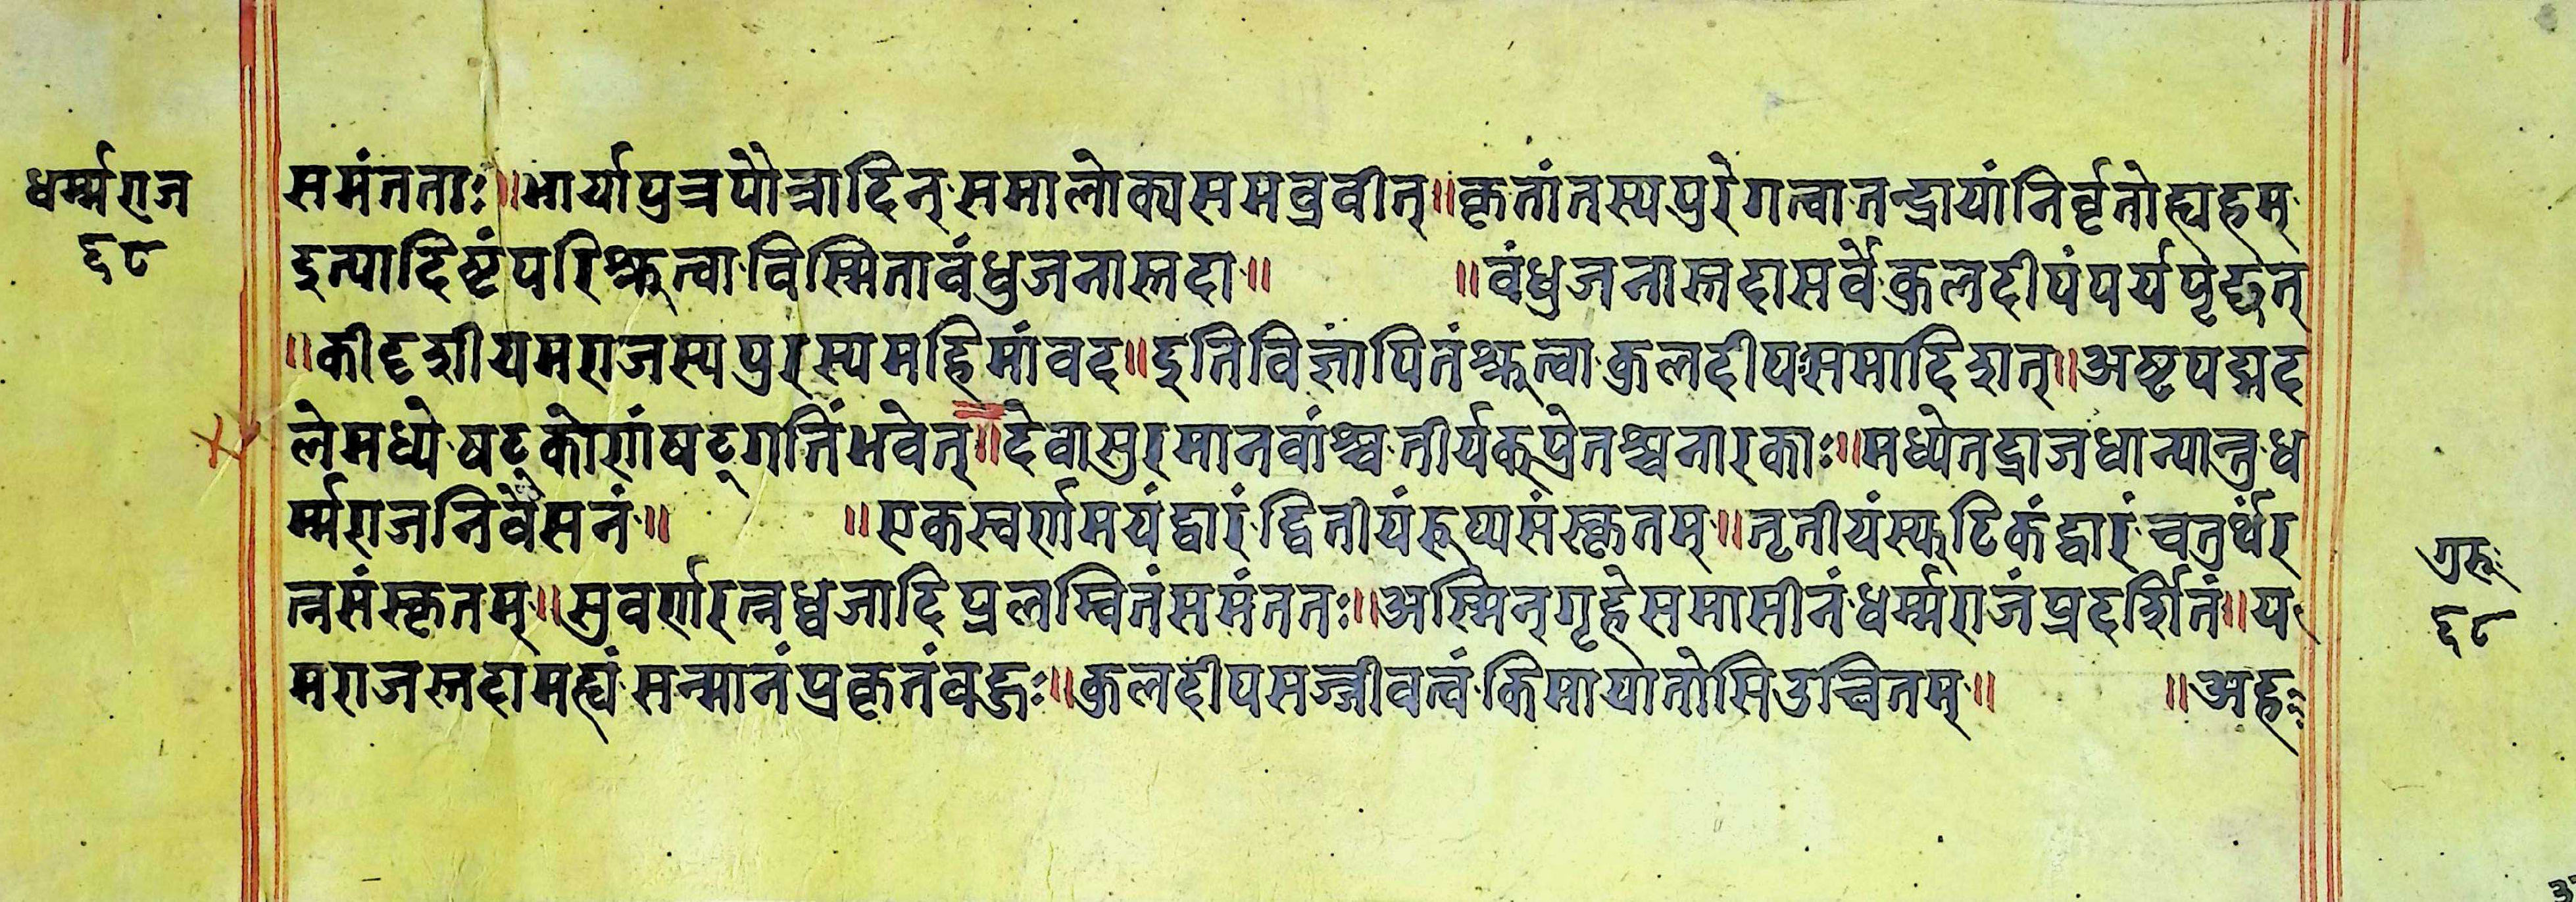 धर्म्मराज
६८
समंतताः॥भार्यापुत्रपौत्रादिन्समालोक्यसमब्रवीत्॥कृतांतस्यपुरेगत्वातन्द्रायांनिर्वृतोह्यहम्
इत्यादिष्टंपरिश्रुत्वाविस्मितावंधुजनास्तदा॥ ॥वंधुजनास्तदासर्वेकुलदीपंपर्यपृछत्
॥कीदृशीयमराजस्यपुरस्यमहिमांवद॥इतिविज्ञापितंश्रुत्वाकुलदीपःसमादिशत्॥अष्टपद्मद
लेमध्येषट्कोणंषट्गतिंभवेत्॥देवासुरमानवांश्चतीर्यक्प्रेतश्चनारकाः॥मध्येतद्राजधान्यान्तुध
र्म्मराजनिवेसनं॥ ॥एकस्वर्णमयंद्वारंद्वितीयंरूप्यसंस्कृतम्॥तृतीयंस्फटिकंद्वारंचतुर्थंर
त्नसंस्कृतम्॥सुवर्णरत्नध्वजादिप्रलम्वितंसमंततः॥अस्मिन्गृहेसमासीनंधर्म्मराजंप्रदर्शितं॥य
मराजस्तदामह्यंसन्मानंप्रकृतंवहुः॥कुलदीपसज्जीवत्वंकिमायातोसिउच्चितम्॥ ॥अह
गुरुः
६८